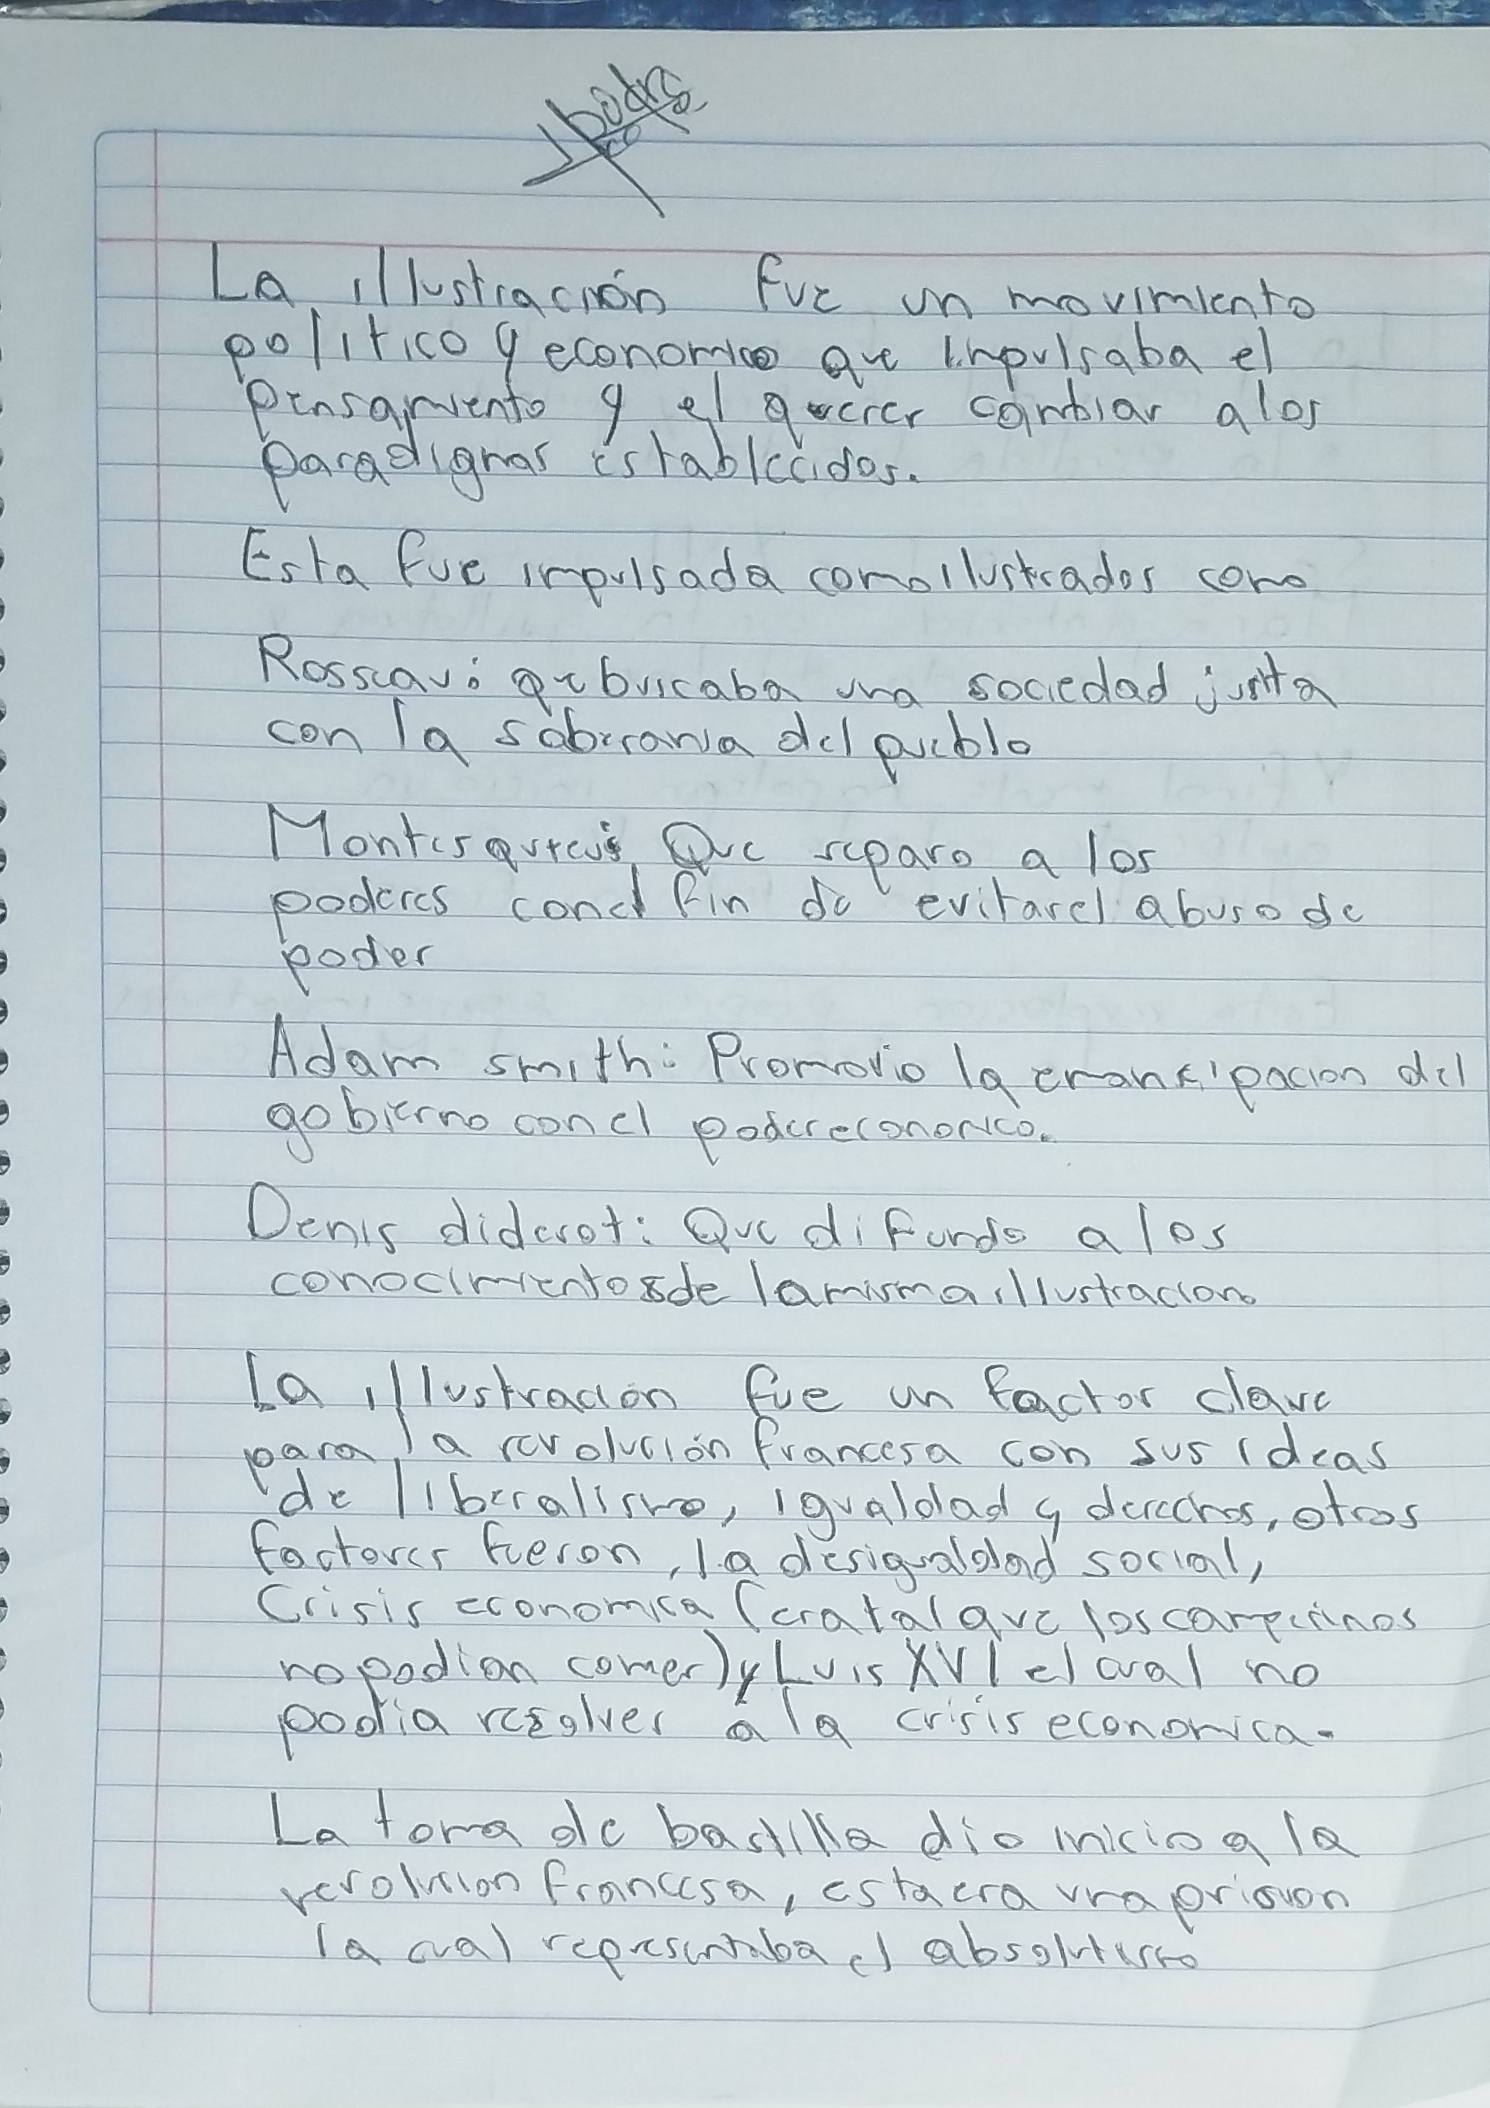 La illustración fue un movimiento
politico y economico que impulsaba el
pensamiento y el querer cambiar alos
paradigmas establecidos.
Esta fue impulsada como ilustrados como
Misseau: que buscaba una sociedad justa
con la soberania del pueblo
Montesquieu: Que separo a los
poderes conel fin de evitarel abuso de
poder
Adam smith: Promovio la emancipacion del
gobierno con el poder economico.
Denis diderot: Que difundo a los
conocimientos de la misma illustracion.
La illustración fue un factor clave
para la revolución francesa con sus ideas
de liberalismo, igualdad y derechos, otros
factores fueron, la desigualdad social,
Crisis economica (era tal que los campesinos
no podian comer) y Luis XVI el cual no
podia resolver a la crisis economica.
La toma de bastilla dio inicio a la
revolucion francesa, esta era una prision
la cual representaba el absolutismo